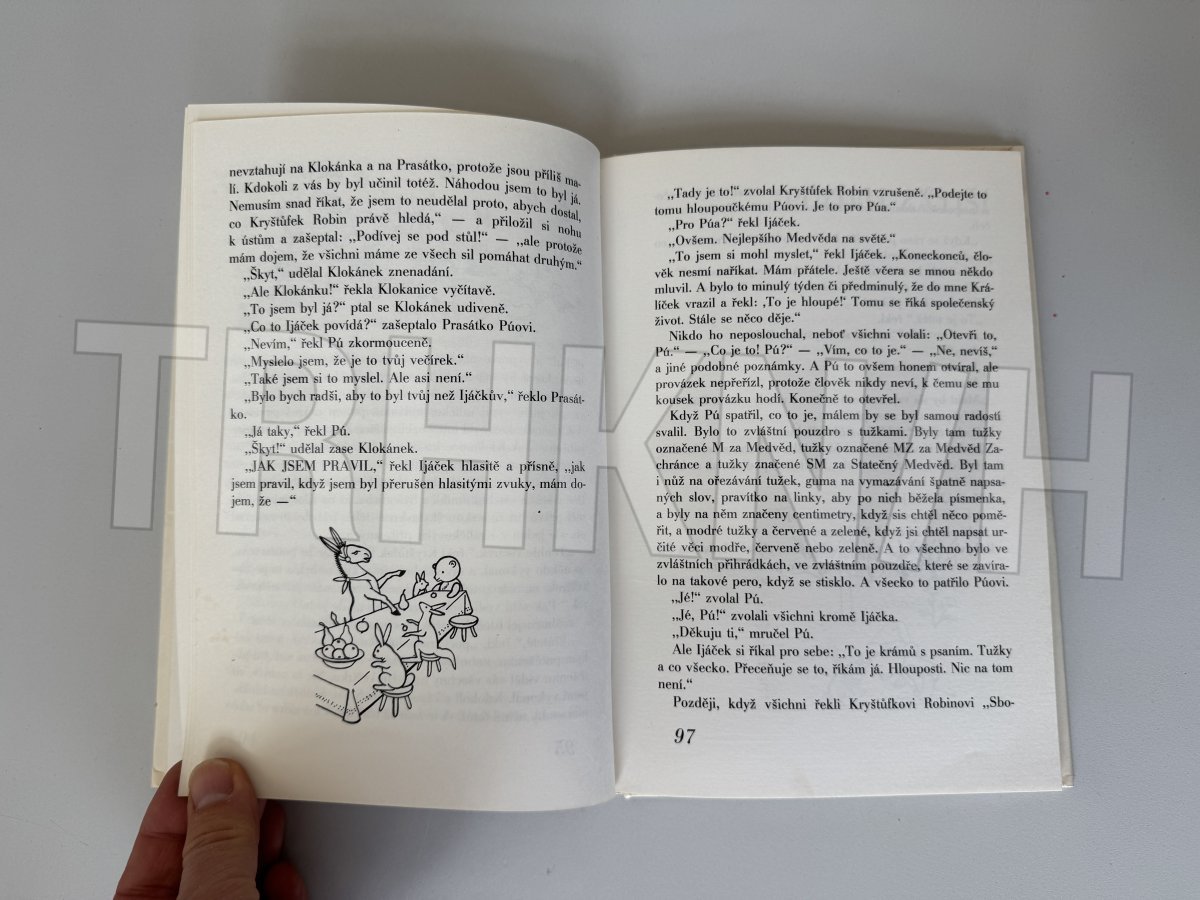 nevztahují na Klokánka a na Prasátko, protože jsou příliš ma-
lí. Kdokoli z vás by byl učinil totéž. Náhodou jsem to byl já.
Nemusím snad říkat, že jsem to neudělal proto, abych dostal,
co Kryštůfek Robin právě hledá,“ — a přiložil si nohu
k ústům a zašeptal: „Podívej se pod stůl!“ — „ale protože
mám dojem, že všichni máme ze všech sil pomáhat druhým.“
„Škyt,“ udělal Klokánek znenadání.
„Ale Klokánku!“ řekla Klokanice vyčítavě.
„To jsem byl já?“ ptal se Klokánek udiveně.
„Co to Ijáček povídá?“ zašeptalo Prasátko Púovi.
„Nevím,“ řekl Pú zkormouceně.
„Myslelo jsem, že je to tvůj večírek.“
„Také jsem si to myslel. Ale asi není.“
„Bylo bych radši, aby to byl tvůj než Ijáčkův,“ řeklo Prasát-
ko.
„Já taky,“ řekl Pú.
„Škyt!“ udělal zase Klokánek.
„JAK JSEM PRAVIL,“ řekl Ijáček hlasitě a přísně, „jak
jsem pravil, když jsem byl přerušen hlasitými zvuky, mám do-
jem, že —“
„Tady je to!“ zvolal Kryštůfek Robin vzrušeně. „Podejte to
tomu hloupoučkému Púovi. Je to pro Púa.“
„Pro Púa?“ řekl Ijáček.
„Ovšem. Nejlepšího Medvěda na světě.“
„To jsem si mohl myslet,“ řekl Ijáček. „Koneckonců, člo-
věk nesmí naříkat. Mám přátele. Ještě včera se mnou někdo
mluvil. A bylo to minulý týden či předminulý, že do mne Krá-
líček vrazil a řekl: ‚To je hloupé!‘ Tomu se říká společenský
život. Stále se něco děje.“
Nikdo ho neposlouchal, neboť všichni volali: „Otevři to,
Pú.“ — „Co je to! Pú?“ — „Vím, co to je.“ — „Ne, nevíš,“
a jiné podobné poznámky. A Pú to ovšem honem otvíral, ale
provázek nepřeřízl, protože člověk nikdy neví, k čemu se mu
kousek provázku hodí. Konečně to otevřel.
Když Pú spatřil, co to je, málem by se byl samou radostí
svalil. Bylo to zvláštní pouzdro s tužkami. Byly tam tužky
označené M za Medvěd, tužky označené MZ za Medvěd Za-
chránce a tužky značené SM za Statečný Medvěd. Byl tam
i nůž na ořezávání tužek, guma na vymazávání špatně napsa-
ných slov, pravítko na linky, aby po nich běžela písmenka,
a byly na něm značeny centimetry, když sis chtěl něco pomě-
řit, a modré tužky a červené a zelené, když jsi chtěl napsat ur-
čité věci modře, červeně nebo zeleně. A to všechno bylo ve
zvláštních přihrádkách, ve zvláštním pouzdře, které se zavíra-
lo na takové pero, když se stisklo. A všecko to patřilo Púovi.
„Jé!“ zvolal Pú.
„Jé, Pú!“ zvolali všichni kromě Ijáčka.
„Děkuju ti,“ mručel Pú.
Ale Ijáček si říkal pro sebe: „To je krámů s psaním. Tužky
a co všecko. Přeceňuje se to, říkám já. Hlouposti. Nic na tom
není.“
Později, když všichni řekli Kryštůfkovi Robinovi „Sbo-
97
TRHKNIH